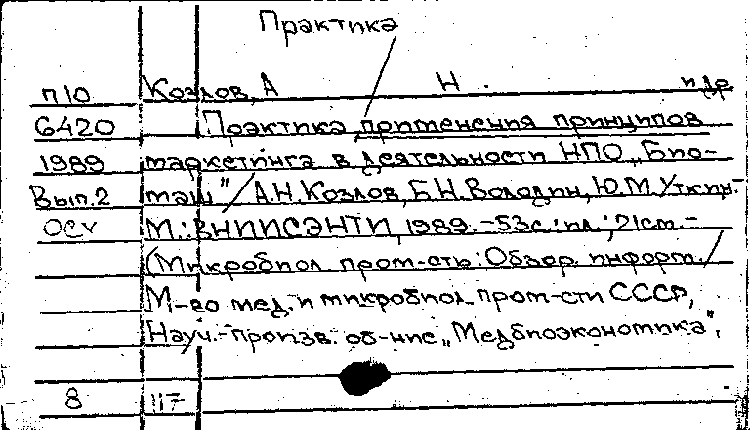 Практика
П10 Козлов, А Н. и др
6420 Практика применения принципов
1989 маркетинга в деятельности НПО „Био-
Вып.2 маш" / А.Н. Козлов, Б.Н. Володин, Ю.М. Уткин.-
ОСУ М.: ВНИИСЭНТИ, 1989.-53с.: ил.; 21см.-
(Микробиол. пром-сть: Обзор. информ. /
М-во мед. и микробиол. пром-сти СССР,
Науч.-произв. об-ние „Медбиоэкономика",
8 117